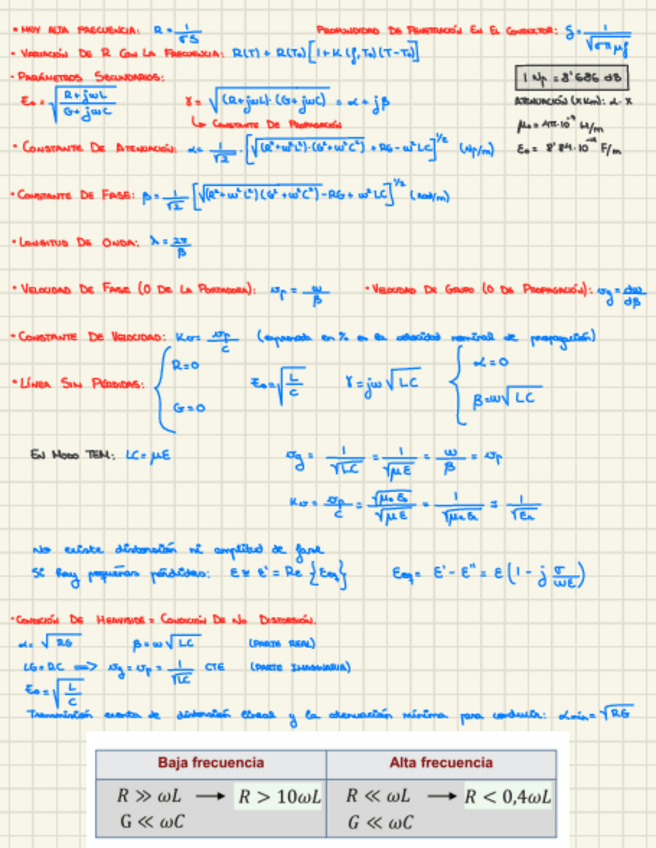 • MUY ALTA FRECUENCIA: R = 1/σS    PROFUNDIDAD DE PENETRACIÓN EN EL CONDUCTOR: δ = 1/√(σπμf)
• VARIACIÓN DE R CON LA FRECUENCIA: R(T) + R(T₀)[1 + K(f,T₀)(T-T₀)]
• PARÁMETROS SECUNDARIOS:    1 Np = 8'686 dB
Z₀ = √((R+jωL)/(G+jωC))    γ = √((R+jωL)·(G+jωC)) = α + jβ    ATENUACIÓN (x Km): α·x
↳ CONSTANTE DE PROPAGACIÓN    μ₀ = 4π·10⁻⁷ H/m
• CONSTANTE DE ATENUACIÓN: α = 1/√2 · [√((R²+ω²L²)·(G²+ω²C²)) + RG - ω²LC]^1/2 (Np/m)    ε₀ = 8'84·10 F/m
• CONSTANTE DE FASE: β = 1/√2 [√((R²+ω²L²)(G²+ω²C²)) - RG + ω²LC]^1/2 (rad/m)
• LONGITUD DE ONDA: λ = 2π/β
• VELOCIDAD DE FASE (O DE LA PORTADORA): vp = ω/β    • VELOCIDAD DE GRUPO (O DE PROPAGACIÓN): vg = dω/dβ
• CONSTANTE DE VELOCIDAD: Kv = vp/c (expresada en % en la velocidad nominal de propagación)
• LÍNEA SIN PÉRDIDAS: { R=0  G=0    Z₀ = √(L/C)    γ = jω√LC    { α=0  β=ω√LC
EN MODO TEM: LC = με    vg = 1/√LC = 1/√με = ω/β = vp
Kv = vp/c = √μ₀ε₀/√με = 1/√μrεr ≈ 1/√εr
No existe distorsión ni amplitud de fase
Si hay pequeñas pérdidas: ε ≈ ε' = Re{εeq}    εeq = ε' - ε'' = ε(1 - j σ/ωε)
• CONDICIÓN DE HEAVISIDE = CONDICIÓN DE NO DISTORSIÓN.
α = √RG    β = ω√LC    (PARTE REAL)
LG = RC ⟹ vg = vp = 1/√LC CTE    (PARTE IMAGINARIA)
Z₀ = √(L/C)
Transmisión exenta de distorsión lineal y la atenuación mínima para conducir: αmin = √RG
Baja frecuencia    Alta frecuencia
R ≫ ωL ⟶ R > 10ωL    R ≪ ωL ⟶ R < 0,4ωL
G ≪ ωC    G ≪ ωC